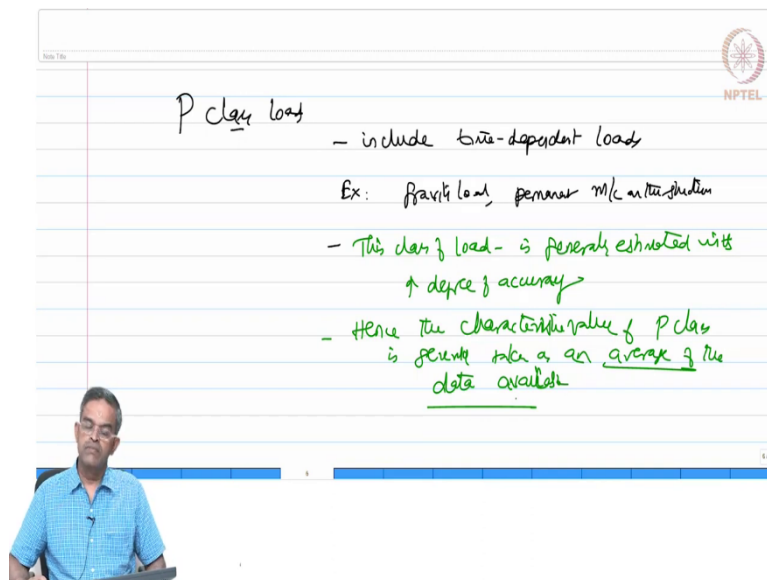 Note Title
NPTEL
P class load
- include time-dependent loads
Ex: Gravity load, permanent m/c on the structure
- This class of load - is generally estimated with
↑ degree of accuracy
- Hence the characteristic value of P class
is generally taken as an average of the
data available
6